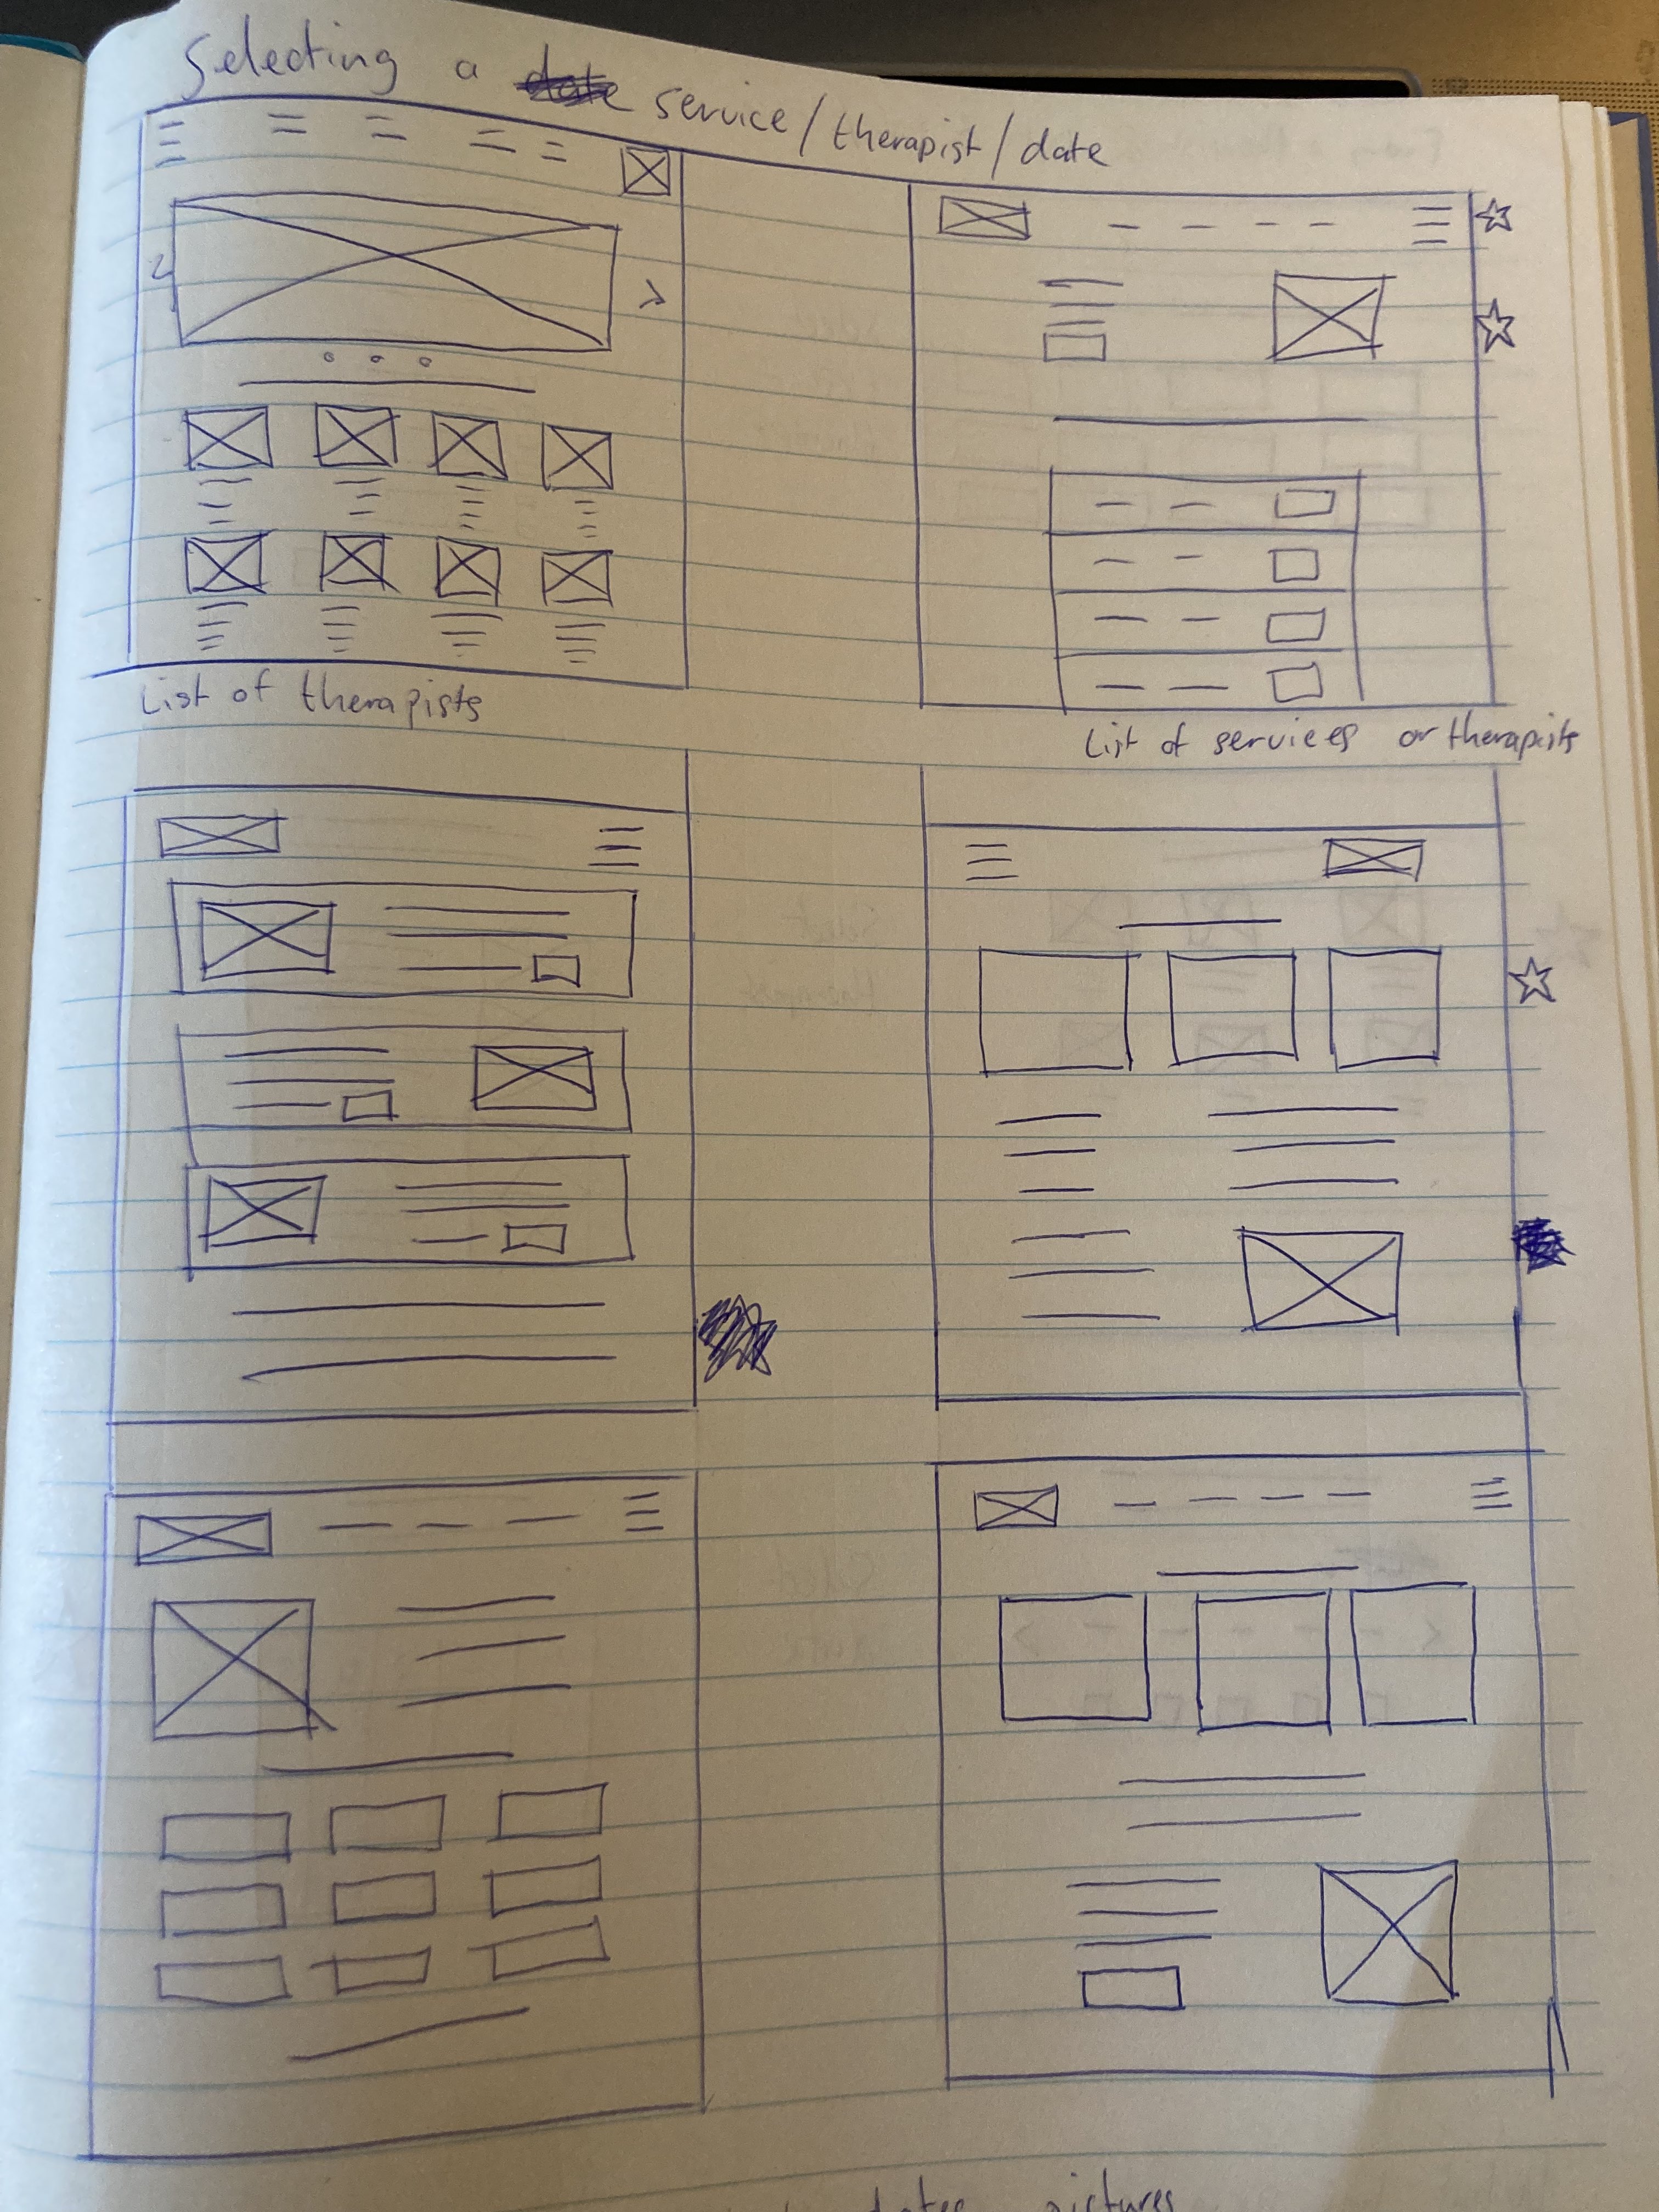 Selecting a date service/therapist/date
List of therapists
List of services or therapists
dates pictures